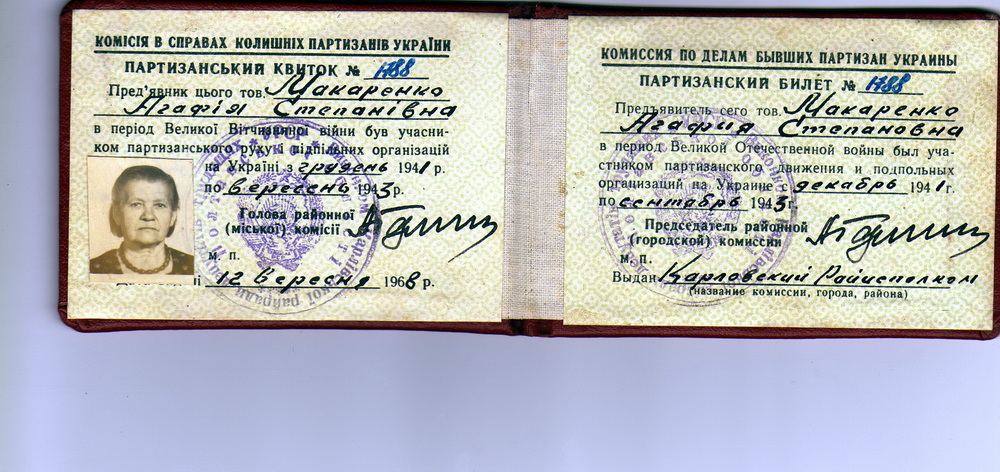 КОМІСІЯ В СПРАВАХ КОЛИШНІХ ПАРТИЗАНІВ УКРАЇНИ
ПАРТИЗАНСЬКИЙ КВИТОК № 1788
Пред'явник цього тов. Макаренко
Агафія Степанівна
в період Великої Вітчизняної війни був учасни-
ком партизанського руху і підпільних організацій
на Україні з грудень 1941 р.
по вересень 1943 р.
Голова районної
(міської) комісії
м. п.
12 вересня 1968 р.
КОМИССИЯ ПО ДЕЛАМ БЫВШИХ ПАРТИЗАН УКРАИНЫ
ПАРТИЗАНСКИЙ БИЛЕТ № 1788
Предъявитель сего тов. Макаренко
Агафия Степановна
в период Великой Отечественной войны был уча-
стником партизанского движения и подпольных
организаций на Украине с декабрь 1941 г.
по сентябрь 1943 г.
Председатель районной
(городской) комиссии
м. п.
Выдан Карловский Райисполком
(название комиссии, города, района)